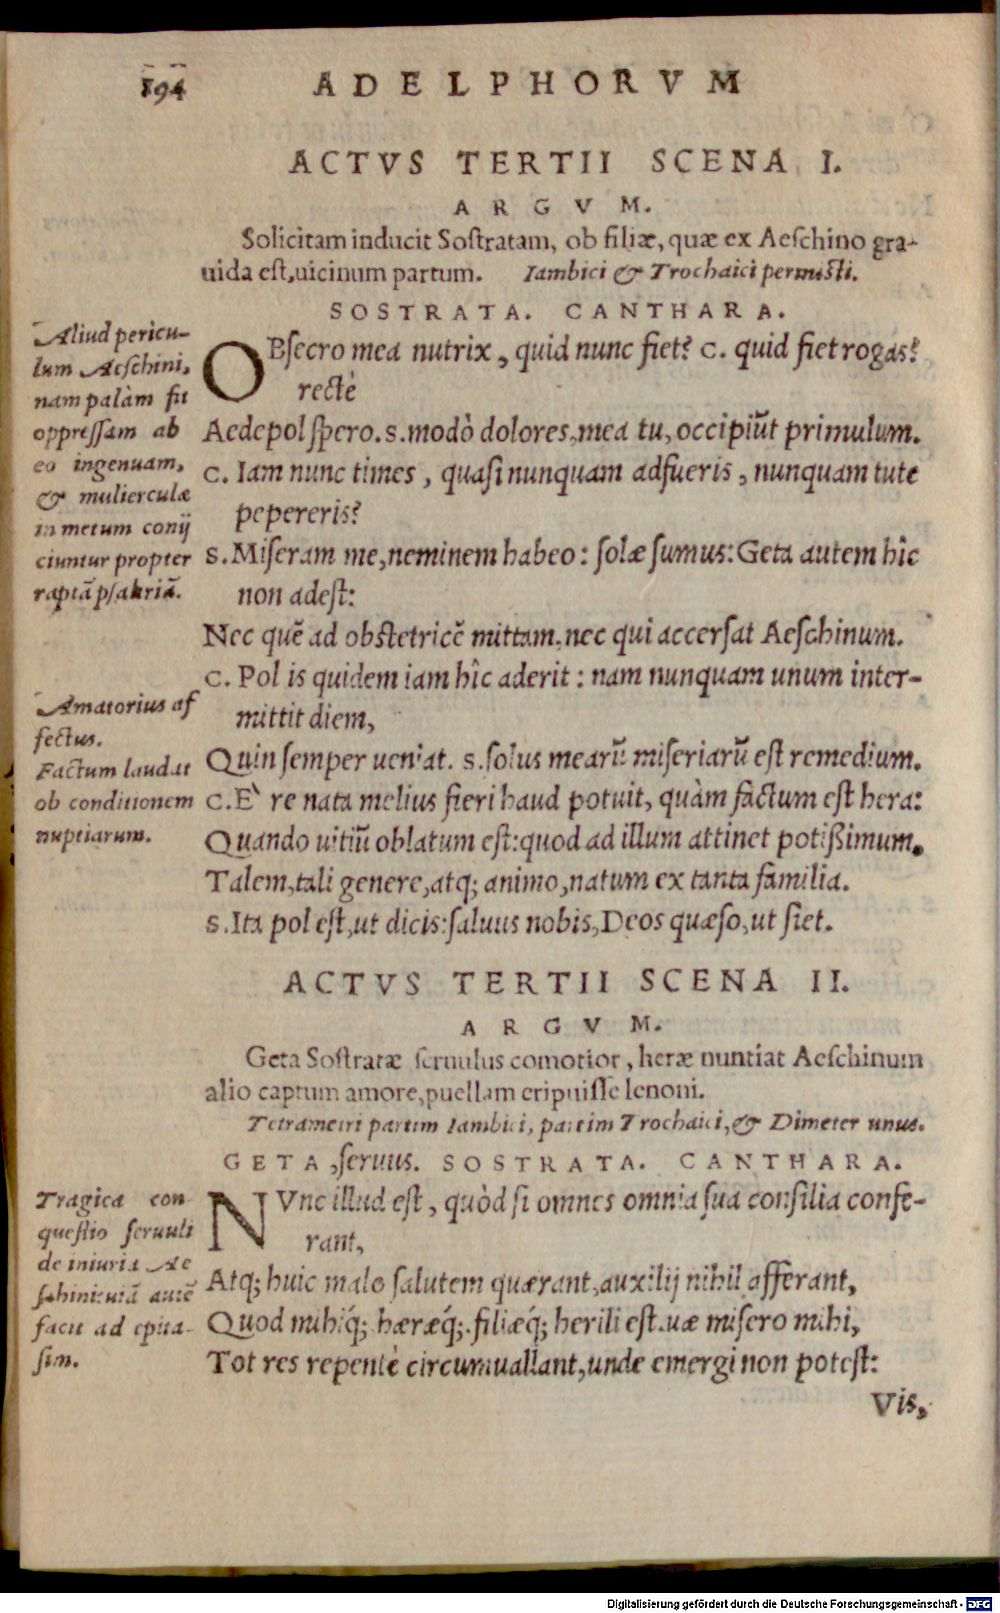 194
ADELPHORVM
ACTVS TERTII SCENA I.
ARGVM.
Solicitam inducit Sostratam, ob filiæ, quæ ex Aeschino gra-
uida est, uicinum partum. Iambici & Trochaici permisti.
SOSTRATA. CANTHARA.
Aliud pericu-
lum Aeschini,
nam palàm fit
oppressam ab
eo ingenuam,
& mulierculæ
in metum conij
ciuntur propter
raptã psaltriã.
OBsecro mea nutrix, quid nunc fiet? C. quid fiet rogas?
rectè
Aedepol spero. S. modò dolores, mea tu, occipiũt primulum.
C. Iam nunc times, quasi nunquam adfueris, nunquam tute
pepereris?
S. Miseram me, neminem habeo: solæ sumus: Geta autem hîc
non adest:
Nec quẽ ad obstetricẽ mittam, nec qui accersat Aeschinum.
C. Pol is quidem iam hîc aderit: nam nunquam unum inter-
mittit diem,
Amatorius af
fectus.
Factum laudat
ob conditionem
nuptiarum.
Quin semper ueniat. S. solus mearũ miseriarũ est remedium.
C. E` re nata melius fieri haud potuit, quàm factum est hera:
Quando uitiũ oblatum est: quod ad illum attinet potißimum.
Talem, tali genere, atq; animo, natum ex tanta familia.
S. Ita pol est, ut dicis: saluus nobis, Deos quæso, ut siet.
ACTVS TERTII SCENA II.
ARGVM.
Geta Sostratæ seruulus comotior, heræ nuntiat Aeschinum
alio captum amore, puellam eripuisse lenoni.
Tetrametri partim Iambici, partim Trochaici, & Dimeter unus.
GETA, seruus. SOSTRATA. CANTHARA.
Tragica con
questio seruuli
de iniuria Ae
schini: uiã autẽ
facit ad epita-
sim.
NVnc illud est, quòd si omnes omnia sua consilia confe-
rant,
Atq; huic malo salutem quærant, auxilij nihil afferant,
Quod mihiq́; hæræq́; filiæq́; herili est. uæ misero mihi,
Tot res repentè circumuallant, unde emergi non potest:
Vis,
Digitalisierung gefördert durch die Deutsche Forschungsgemeinschaft - DFG